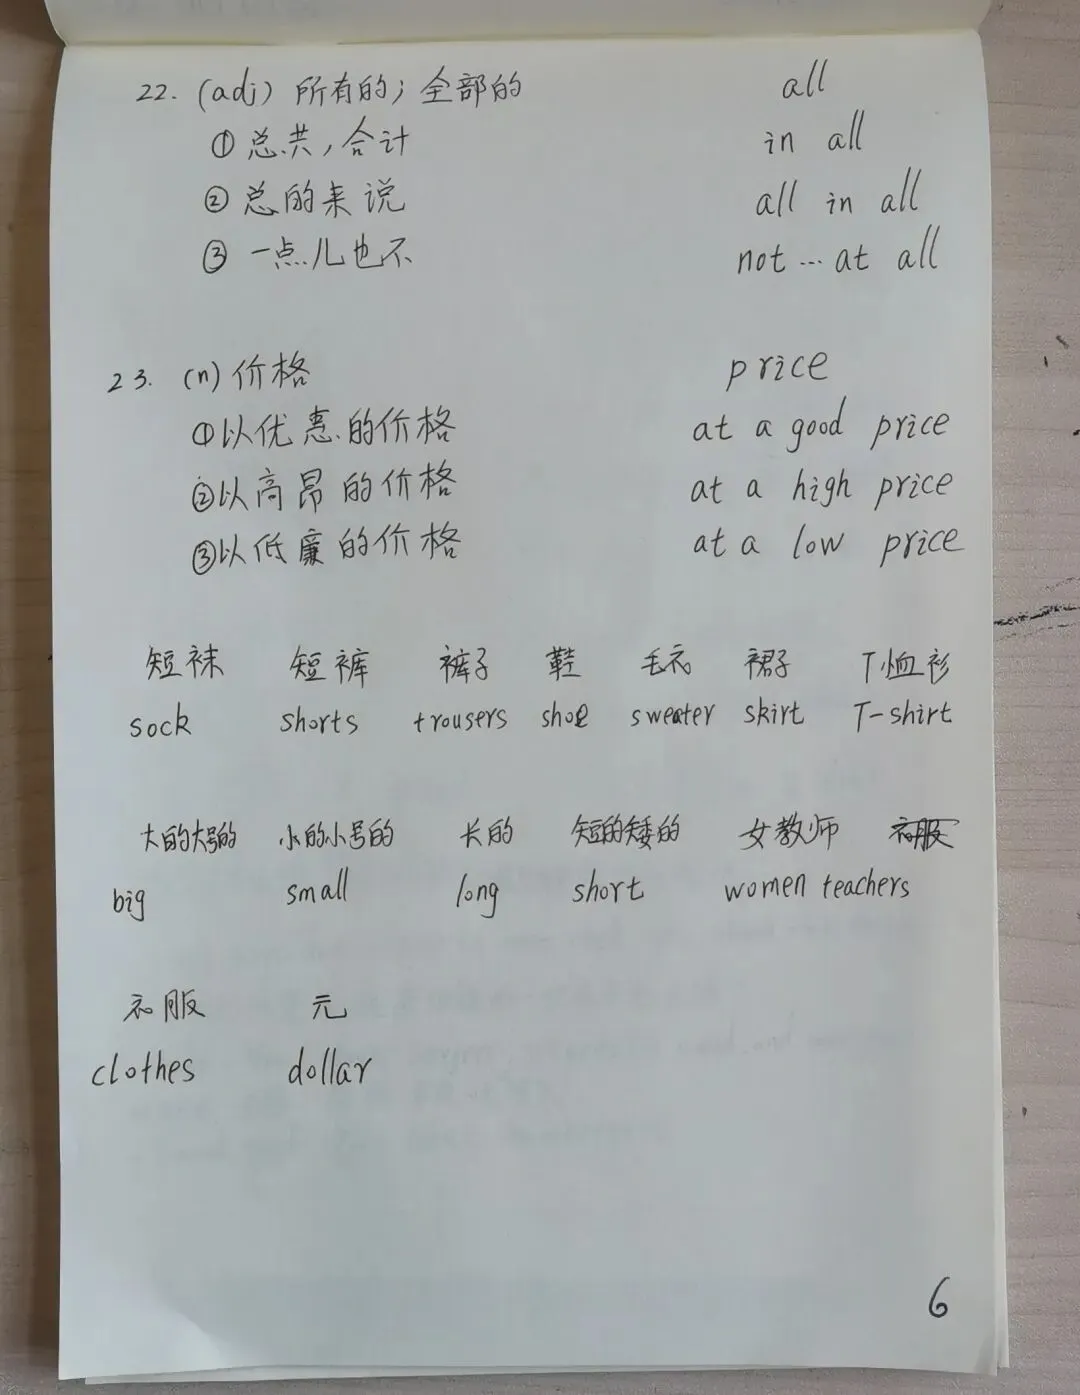 22. (adj) 所有的；全部的 all
① 总共，合计 in all
② 总的来说 all in all
③ 一点儿也不 not ... at all
23. (n) 价格 price
①以优惠的价格 at a good price
②以高昂的价格 at a high price
③以低廉的价格 at a low price
短袜 短裤 裤子 鞋 毛衣 裙子 T恤衫
sock shorts trousers shoe sweater skirt T-shirt
大的大号的 小的小号的 长的 短的矮的 女教师 衣服
big small long short women teachers
衣服 元
clothes dollar
6